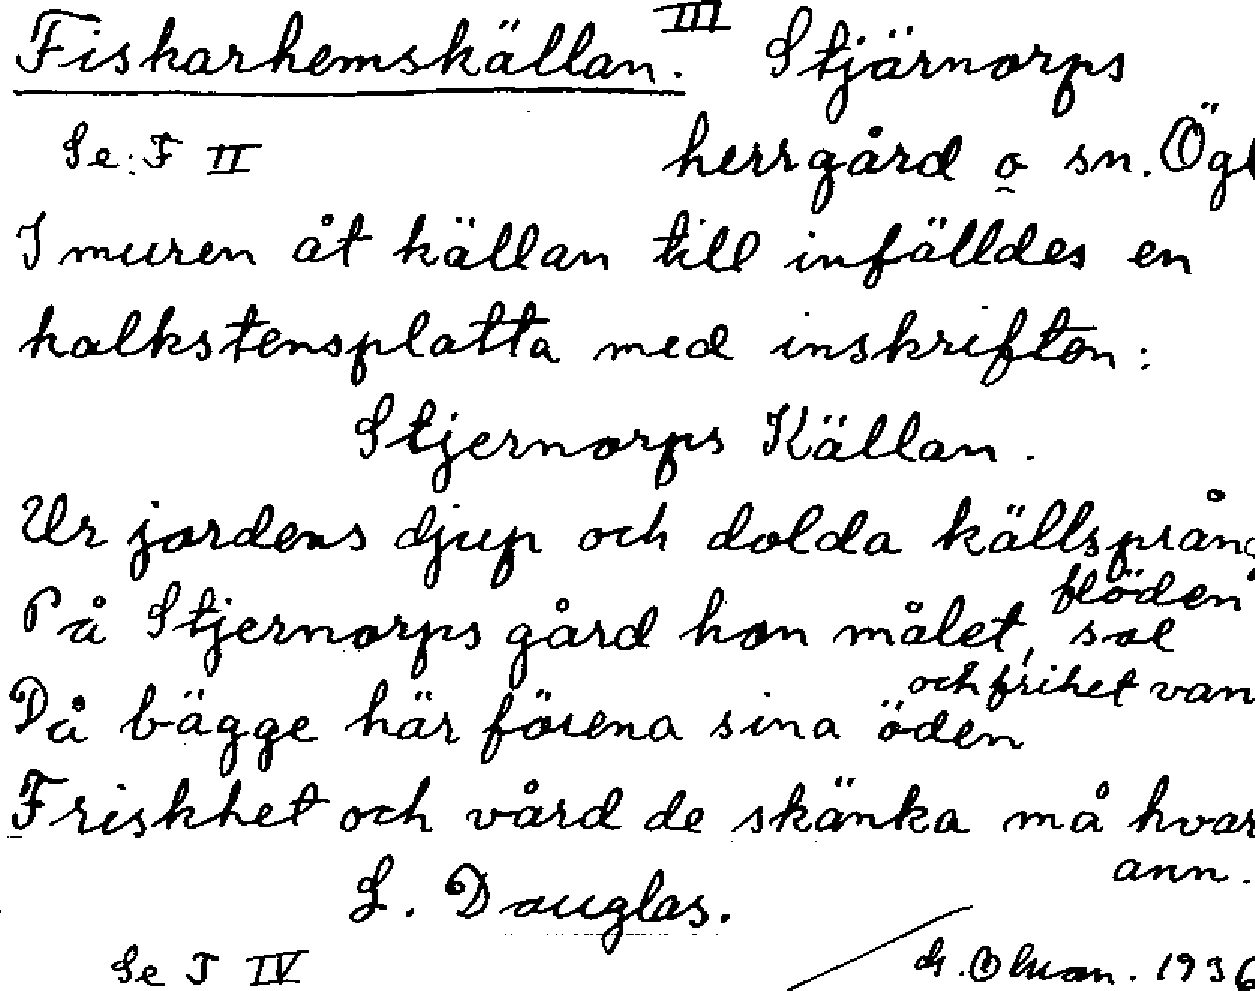 Fiskarhemskällan. III Stjärnorps
Se: F II herrgård o sn. Ögl
I muren åt källan till infälldes en
kalkstensplatta med inskriften:
Stjernorps Källan.
Ur jordens djup och dolda källsprång
flöden
På Stjernorps gård han målet, sol
och frihet van
Då bägge här förena sina öden
Friskhet och vård de skänka må hvar
ann.
L. Douglas.
Se F IV 1936